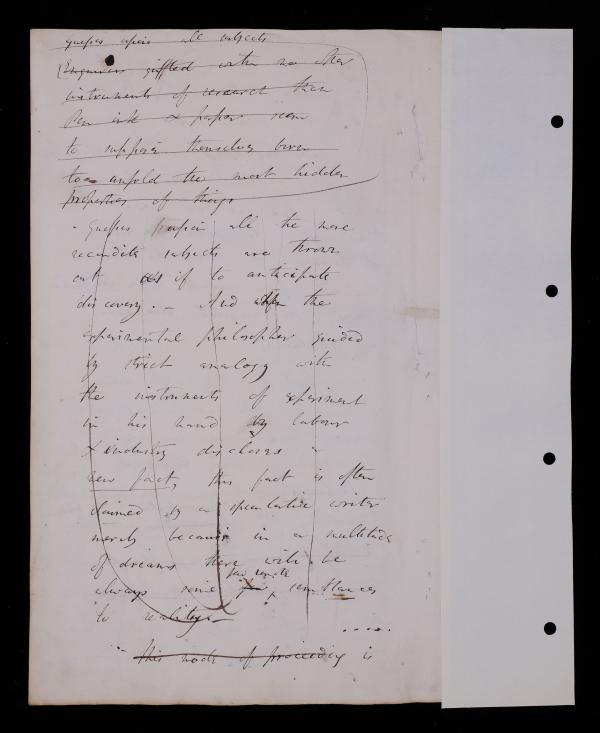 guesses upon all subjects
Engineers gifted with no other
instruments of research than
Pen ink & paper seem
to suppose themselves born
to unfold the most hidden
properties of things
- guesses upon all the more
recondite subjects are thrown
out as if to anticipate
discovery. - And when the
experimental philosopher guided
by strict analogy with
the instruments of experiment
in his hand by labour
& industry discloses a
new fact, this fact is often
claimed by a speculative writer
merely because in a multitude
of dreams there will be
always some few remote semblances
to reality -
....
" this mode of proceeding is